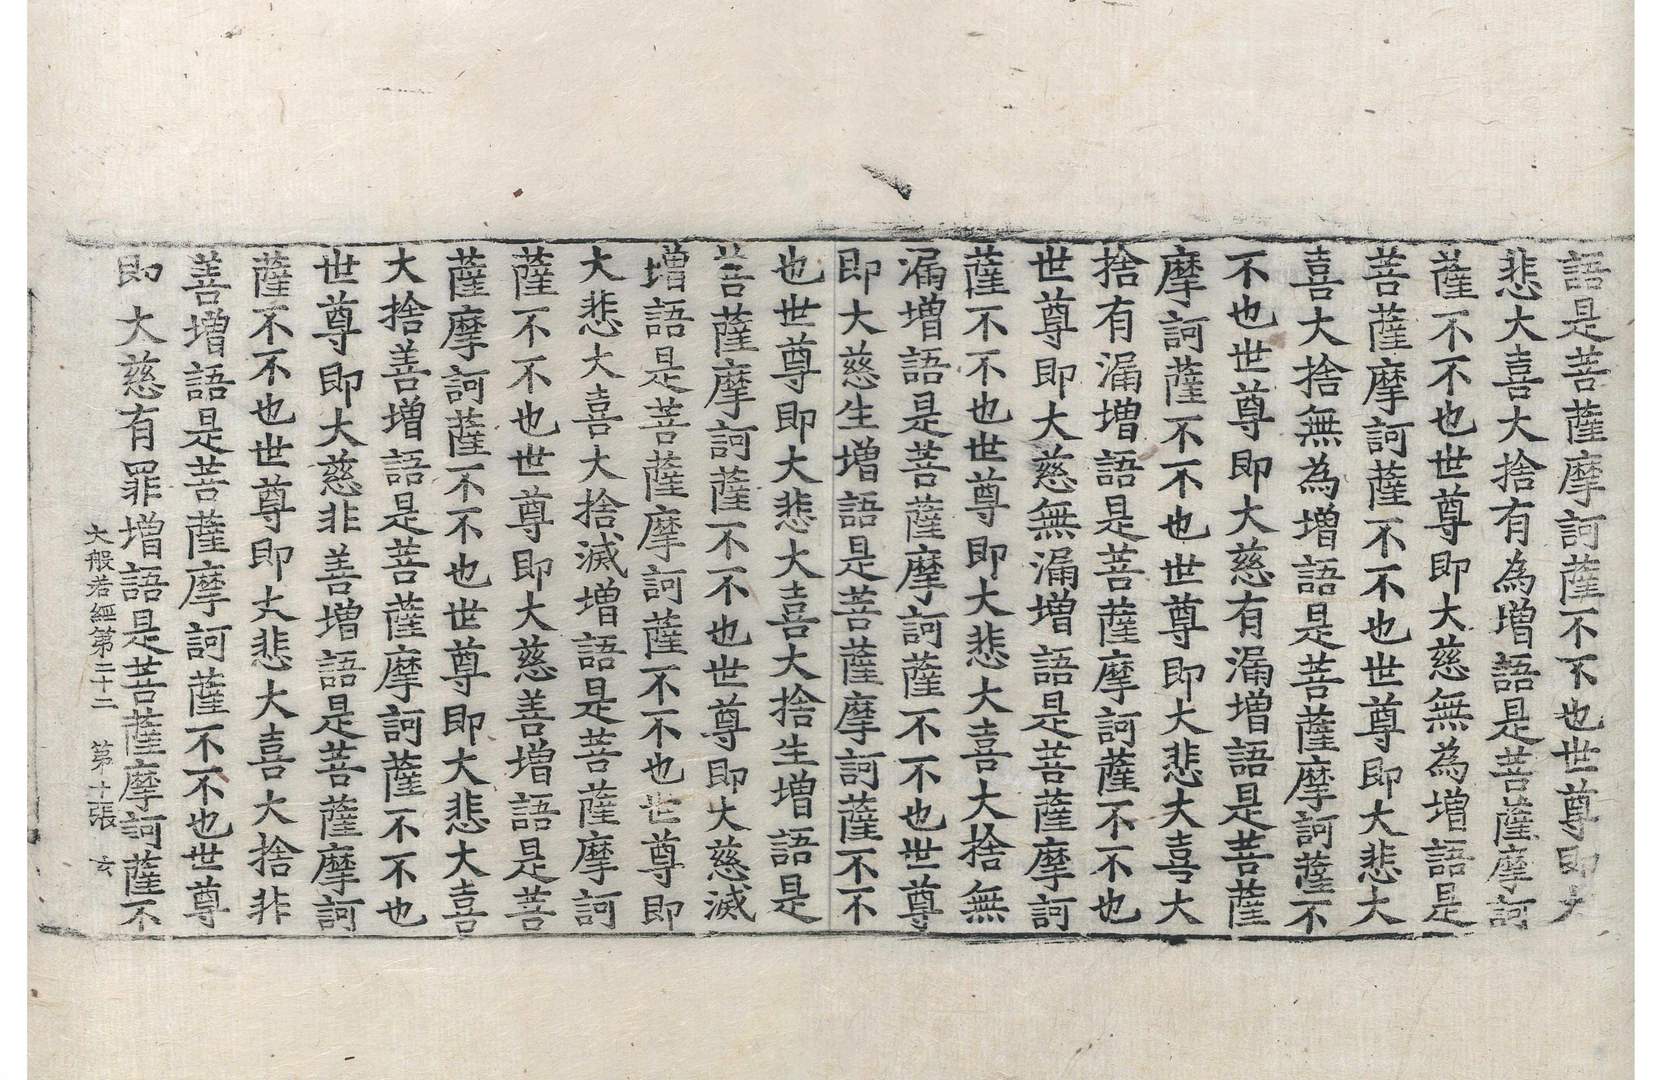 語是菩薩摩訶薩不不也世尊即大
悲大喜大捨有為增語是菩薩摩訶
薩不不也世尊即大慈無為增語是
菩薩摩訶薩不不也世尊即大悲大
喜大捨無為增語是菩薩摩訶薩不
不也世尊即大慈有漏增語是菩薩
摩訶薩不不也世尊即大悲大喜大
捨有漏增語是菩薩摩訶薩不不也
世尊即大慈無漏增語是菩薩摩訶
薩不不也世尊即大悲大喜大捨無
漏增語是菩薩摩訶薩不不也世尊
即大慈生增語是菩薩摩訶薩不不
也世尊即大悲大喜大捨生增語是
菩薩摩訶薩不不也世尊即大慈滅
增語是菩薩摩訶薩不不也世尊即
大悲大喜大捨滅增語是菩薩摩訶
薩不不也世尊即大慈善增語是菩
薩摩訶薩不不也世尊即大悲大喜
大捨善增語是菩薩摩訶薩不不也
世尊即大慈非善增語是菩薩摩訶
薩不不也世尊即大悲大喜大捨非
善增語是菩薩摩訶薩不不也世尊
即大慈有罪增語是菩薩摩訶薩不
大般若經第二十二 第十張 玄